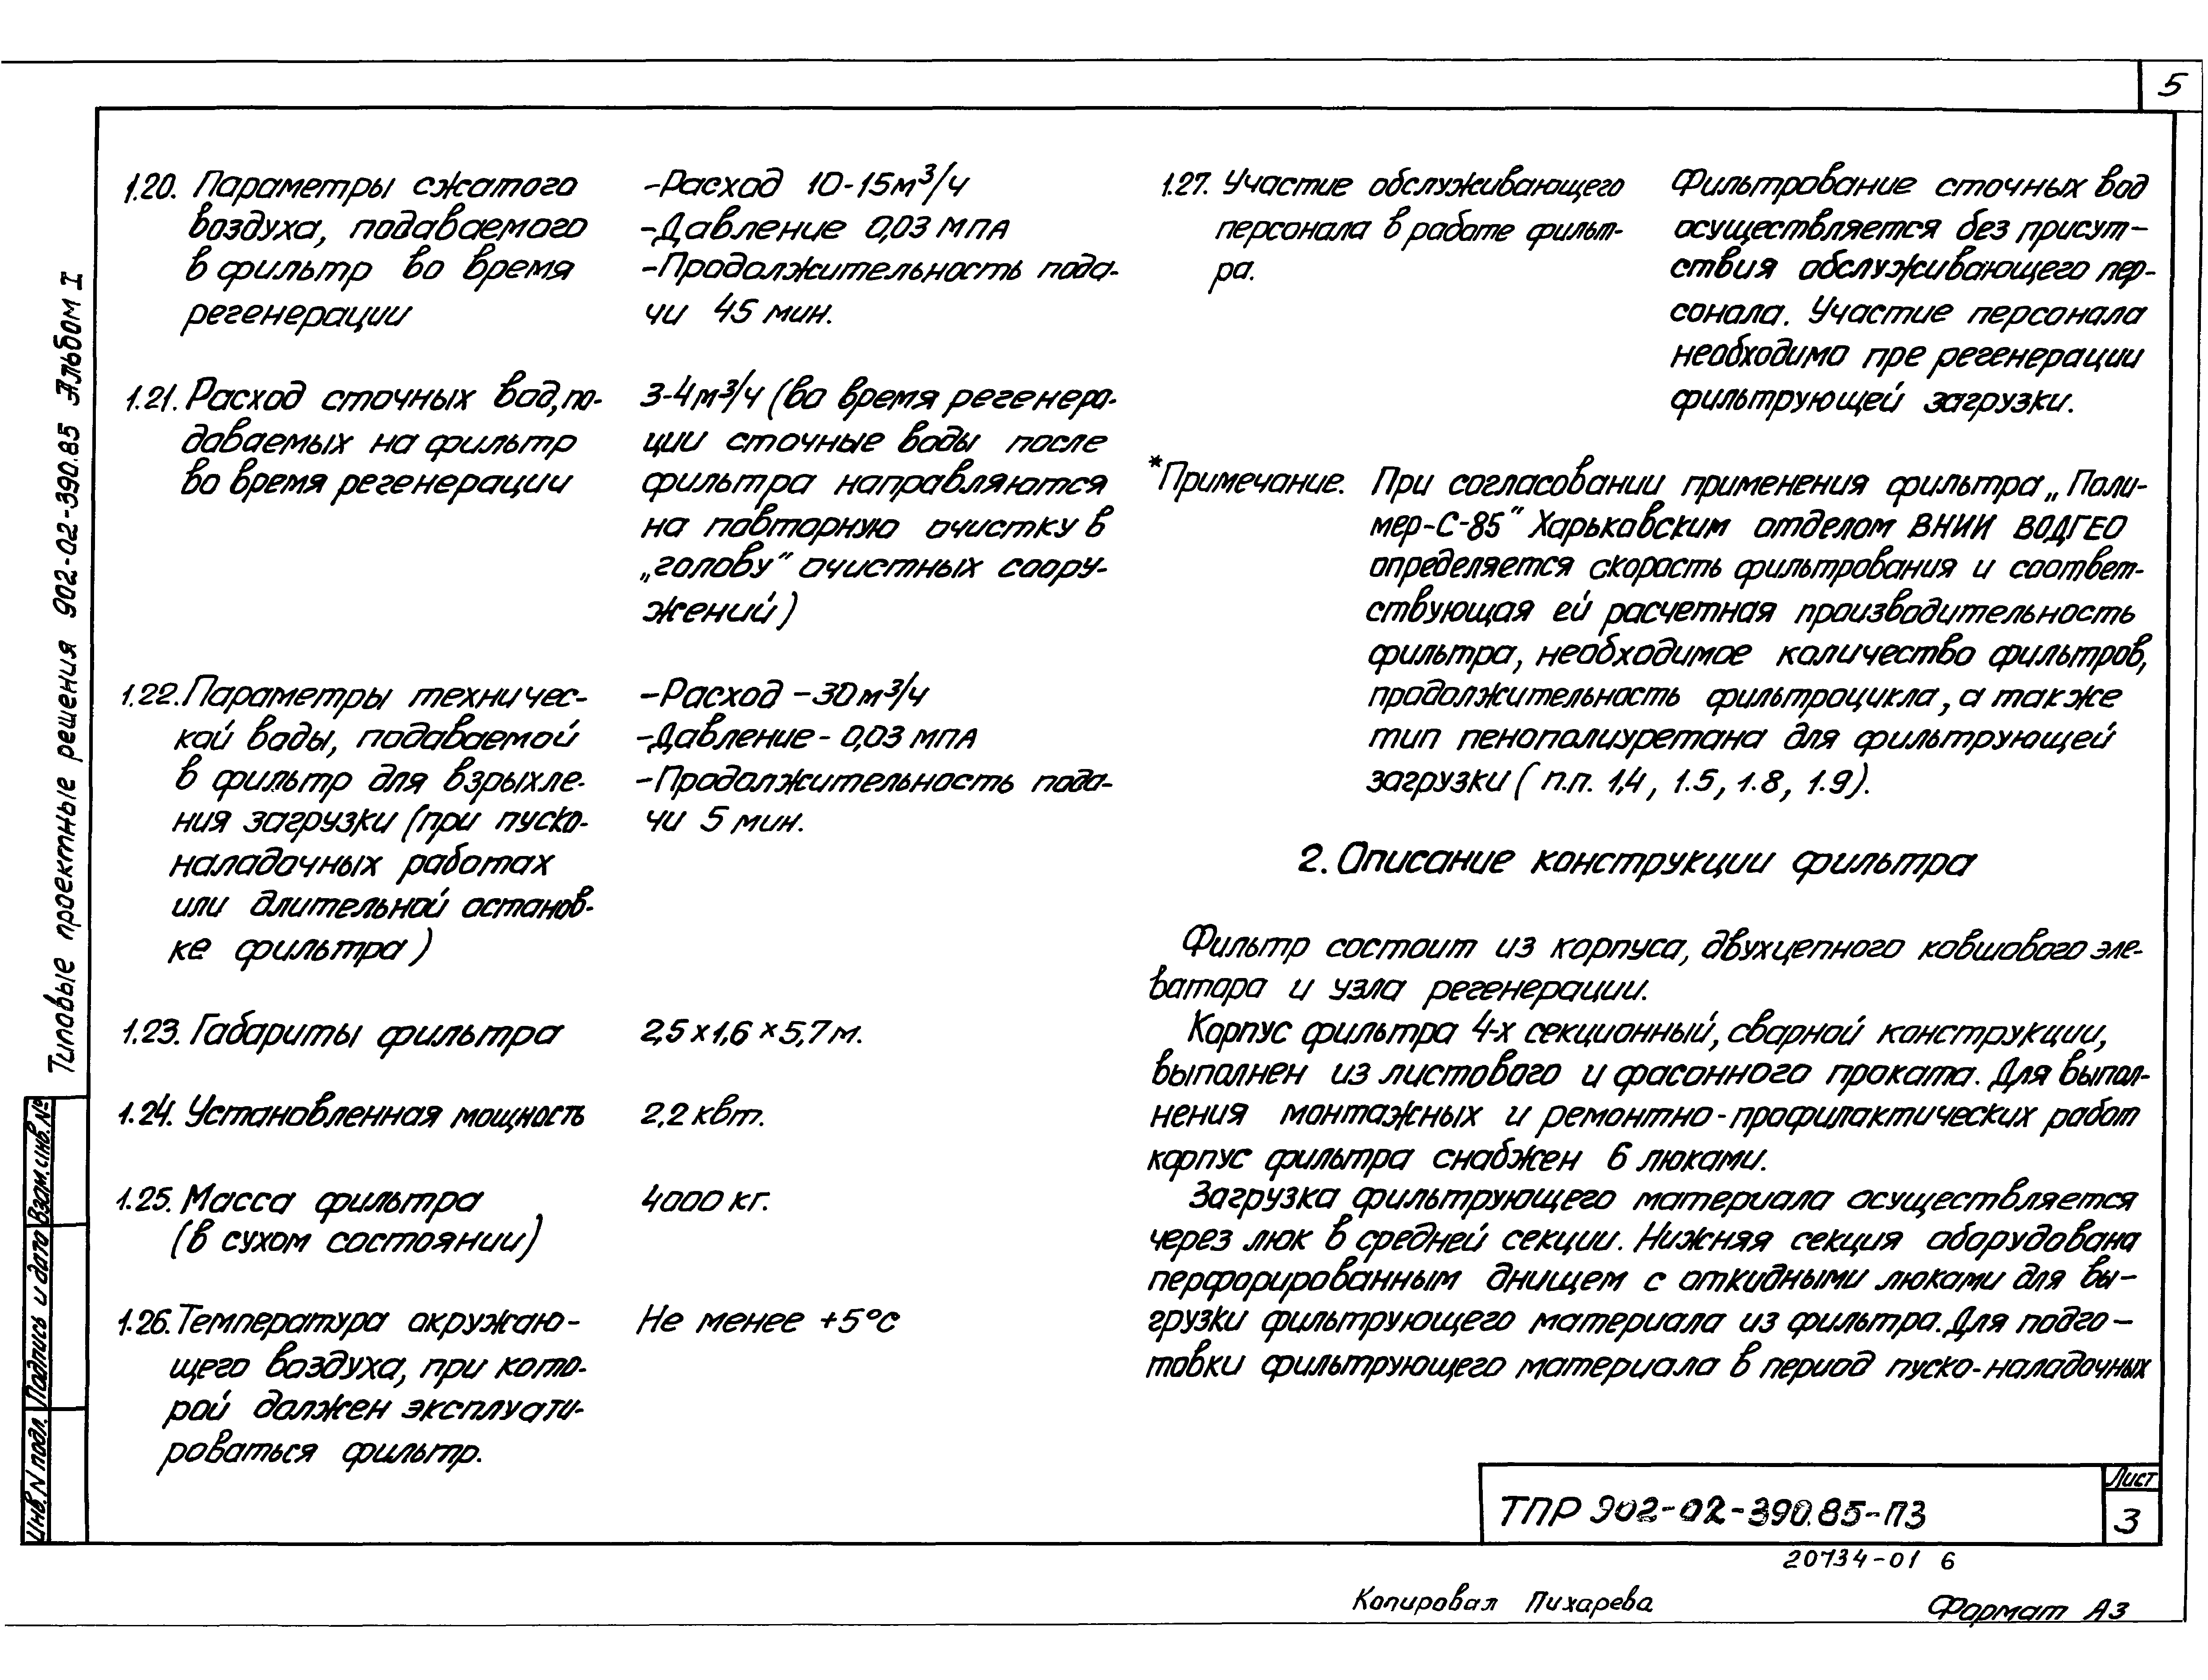 5
1.20. Параметры сжатого
воздуха, подаваемого
в фильтр во время
регенерации
-Расход 10-15м³/ч
-Давление 0,03 МПА
-Продолжительность пода-
чи 45 мин.
1.21. Расход сточных вод, по-
даваемых на фильтр
во время регенерации
3-4м³/ч (во время регенера-
ции сточные воды после
фильтра направляются
на повторную очистку в
„голову" очистных соору-
жений)
1.22. Параметры техничес-
кой воды, подаваемой
в фильтр для взрыхле-
ния загрузки (при пуско-
наладочных работах
или длительной останов-
ке фильтра)
-Расход -30м³/ч
-Давление - 0,03 МПА
-Продолжительность пода-
чи 5 мин.
1.23. Габариты фильтра
2,5 х 1,6 х 5,7 м.
1.24. Установленная мощность
2,2 квт.
1.25. Масса фильтра
(в сухом состоянии)
4000 кг.
1.26. Температура окружаю-
щего воздуха, при кото-
рой должен эксплуати-
роваться фильтр.
Не менее +5°С
1.27. Участие обслуживающего
персонала в работе фильт-
ра.
Фильтрование сточных вод
осуществляется без присут-
ствия обслуживающего пер-
сонала. Участие персонала
необходимо пре регенерации
фильтрующей загрузки.
*Примечание. При согласовании применения фильтра „Поли-
мер-С-85" Харьковским отделом ВНИИ ВОДГЕО
определяется скорость фильтрования и соответ-
ствующая ей расчетная производительность
фильтра, необходимое количество фильтров,
продолжительность фильтроцикла, а также
тип пенополиуретана для фильтрующей
загрузки ( п.п. 1,4, 1.5, 1.8, 1.9).
2. Описание конструкции фильтра
Фильтр состоит из корпуса, двухцепного ковшового эле-
ватора и узла регенерации.
Корпус фильтра 4-х секционный, сварной конструкции,
выполнен из листового и фасонного проката. Для выпол-
нения монтажных и ремонтно-профилактических работ
корпус фильтра снабжен 6 люками.
Загрузка фильтрующего материала осуществляется
через люк в средней секции. Нижняя секция оборудована
перфорированным днищем с откидными люками для вы-
грузки фильтрующего материала из фильтра. Для подго-
товки фильтрующего материала в период пуско-наладочных
Типовые проектные решения 902-02-390.85 Альбом I
Взам. инв. №
Подпись и дата
Инв. N подл.
ТПР 902-02-390.85-ПЗ
Лист
3
20734-01 6
Копировал Пихарева
Формат А3